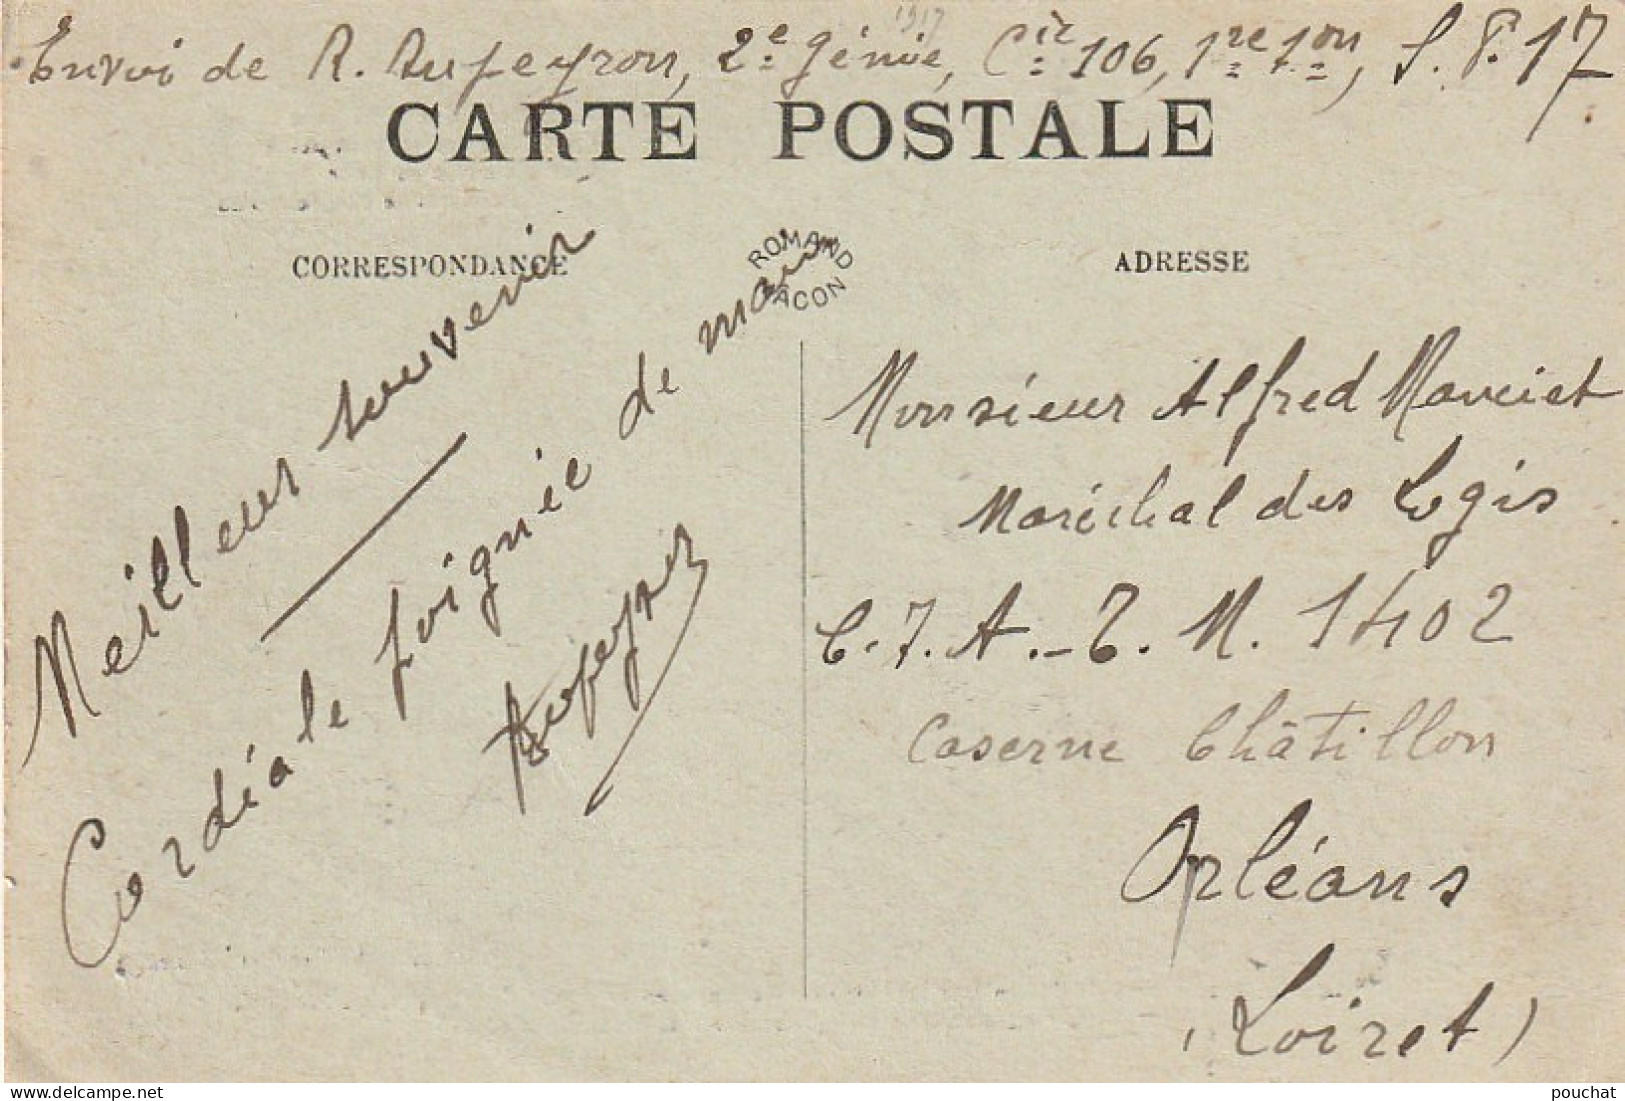 1917
Envoi de R. Dupeyron, 2e Génie, Cie 106, 1re 7on, S. P. 17
CARTE POSTALE
CORRESPONDANCE
ROMAND
MACON
ADRESSE
Meilleur souvenir
Cordiale poignée de main
Dupeyron
Monsieur Alfred Mauciet
Maréchal des Logis
C. 7. A. - T. M. 1402
Caserne Châtillon
Orléans
(Loiret)
pouchat